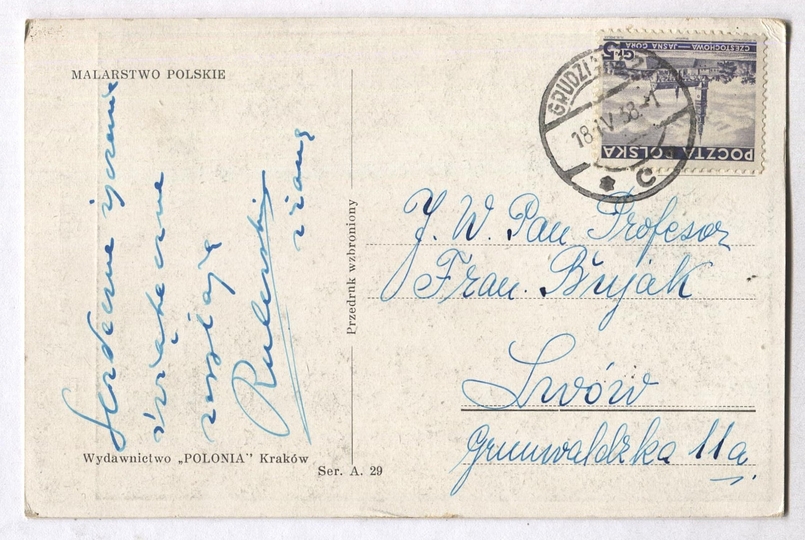 MALARSTWO POLSKIE
Serdeczne życzenia
świąteczne
zasyłają
Rulerski
z żoną
Wydawnictwo „POLONIA” Kraków
Ser. A. 29
Przedruk wzbroniony
5 GR
CZĘSTOCHOWA — JASNA GÓRA
POCZTA POLSKA
GRUDZI
18 IV 38-1
* C
J. W. Pan Profesor
Fran. Bujak
Lwów
Grunwaldzka 11a